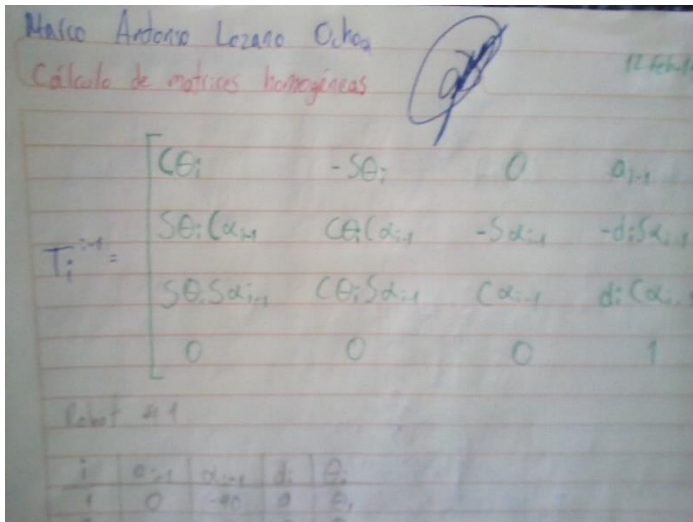 Marco Antonio Lozano Ochoa
12 Feb
Cálculo de matrices homogéneas
Cθi -Sθi 0 ai-1
SθiCαi-1 CθiCαi-1 -Sαi-1 -diSαi-1
Ti i-1 =
SθiSαi-1 CθiSαi-1 Cαi-1 diCαi-1
0 0 0 1
Robot #1
i ai-1 αi-1 di θi
1 0 -90 0 θ1